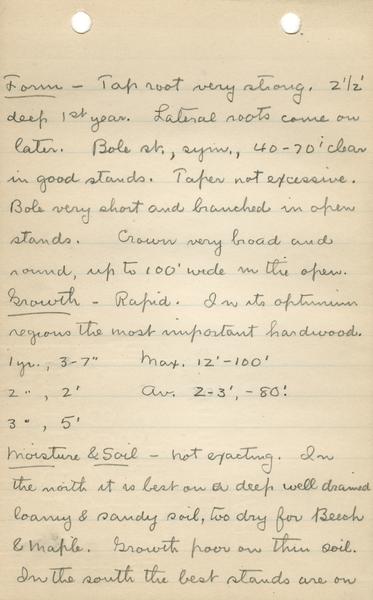 Form - Tap root very strong. 2 1/2'
deep 1st year. Lateral roots come on
later. Bole st., sym., 40-70' clear
in good stands. Taper not excessive.
Bole very short and branched in open
stands. Crown very broad and
round, up to 100' wide in the open.
Growth - Rapid. In its optimum
regions the most important hardwood.
1 yr., 3-7" Max. 12'-100'
2 " , 2' Av. 2-3', -80'.
3 " , 5'
Moisture & Soil - not exacting. In
the north it is best on a deep well drained
loamy & sandy soil, too dry for Beech
& Maple. Growth poor on thin soil.
In the south the best stands are on